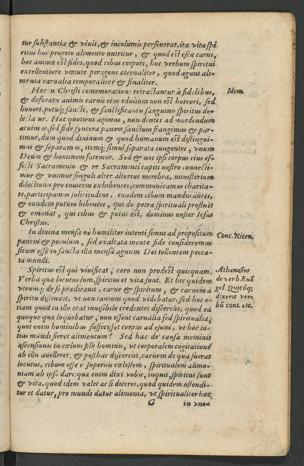 tur substantia & viuit, & incolumis perseuerat, ita vita spi
ritus hoc proprio alimento nutritur, & quod est esca carni,
hoc animæ est fides, quod cibus corpori, hoc verbum spiritui
excellentiore virtute peragens æternaliter, quod agunt ali-
menta carnalia temporaliter & finaliter.
Hæc in Christi commemoratione retractantur à fidelibus,
Idem.
& defæcati animi carni eius eduliu non est horrori, sed
honori, potuq; sancti, & sanctificantis sanguinis spiritus de-
lectatur. Hæc quotiens agimus, non dentes ad mordendum
acuimus, sed fide syncera panem sanctum frangimus & par-
timur, dum quod diuinum & quod humanum est distingui-
mus & separamus, itemq; simul separata iungentes, vnum
Deum & hominem fatemur. Sed & nos ipsi corpus eius ef-
fecti Sacramento & re Sacramenti capiti nostro connecti-
mur & vnimur singuli alter alterius membra, ministerium
dilectionis pro inuicem exhibentes, communicamus charita-
te, participamus solicitudine, eundem cibum manducantes,
& eundem potum bibentes, qui de petra spirituali profluit
& emanat, qui cibus & potus est, dominus noster Iesus
Christus.
In diuina mensa ne humiliter intenti simus ad propositum
Conc. Nicen.
panem & poculum, sed exaltata mente fide consideremus
situm esse in sancta illa mensa agnum Dei tollentem pecca-
ta mundi.
Spiritus est qui viuificat, caro non prodest quicquam.
Athanasius
Verba quæ locutus sum, spiritus et vita sunt. Et hic quidem
de verb. Euã
vtrunq; de se prædicauit, carne & spiritum, & carnem à
gel. Quicũq;
spiritu distinxit, vt non tantum quod videbatur, sed hoc e-
dixerit ver
tiam quod in illo erat inuisibile credentes discerent, quod ea
bũ cont. etc.
quoque quæ loquebatur, non essent carnalia sed spiritualia,
quot enim hominibus suffecisset corpus ad esum, vt hoc to-
tius mundi fieret alimentum? Sed hac de causa meminit
ascensionis in cœlum filij hominis, vt corporalem cogitationẽ
ab illis auelleret, & posthac discerent, carnem de qua fuerat
locutus, cibum esse è supernis cœlestem, spiritualem alimo-
niam ab ipso dari: quæ enim dixi vobis, inquit, spiritus sunt
& vita, quod idem valet ac si diceret, quod quidem ostendi-
tur et datur, pro mundi datur alimento, vt spiritualiter hæc
G
in vnoq